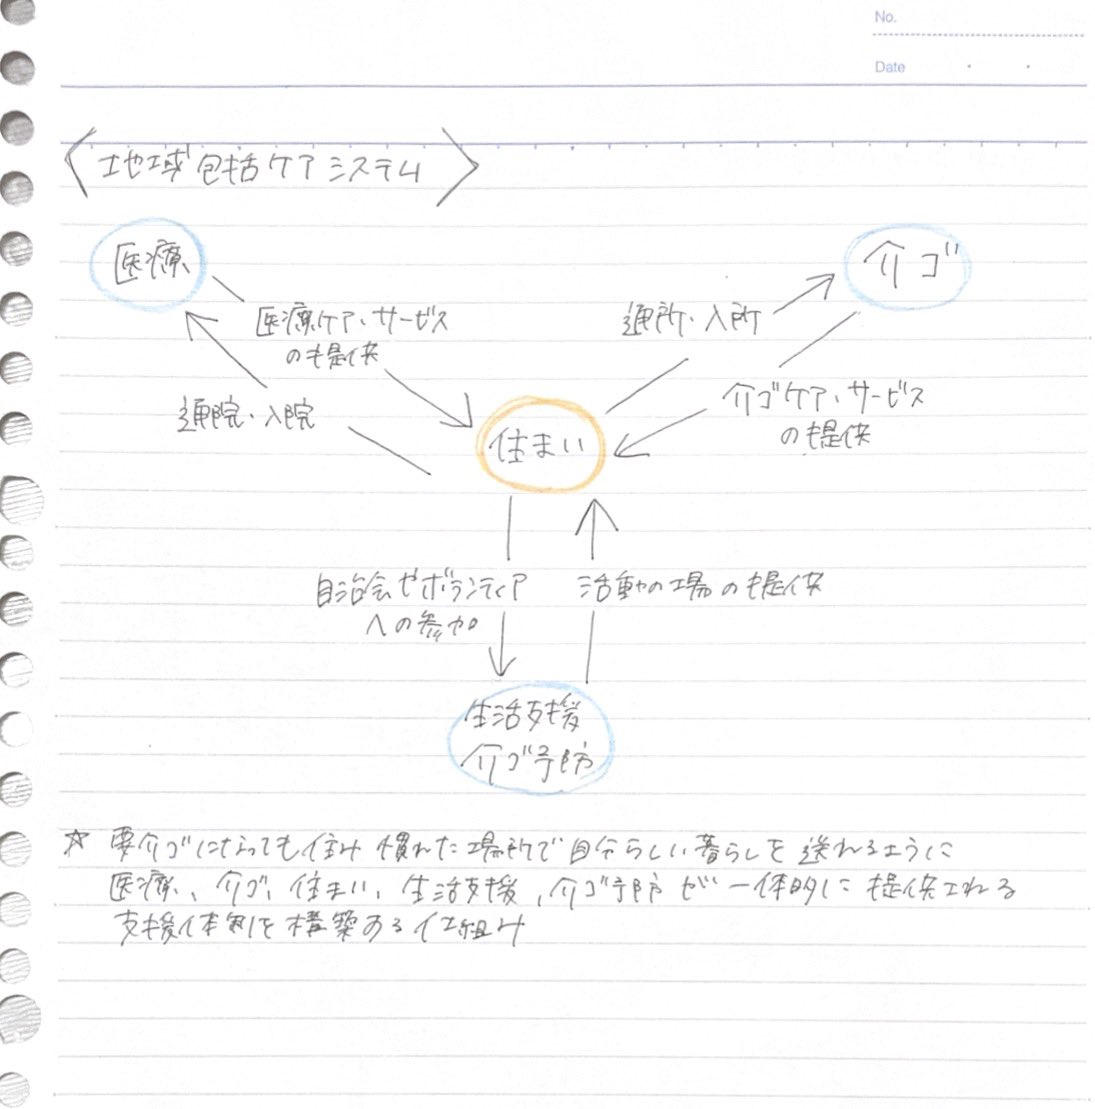 No.
Date
〈地域包括ケアシステム〉
医療
介ゴ
医療ケア・サービス
の提供
通所・入所
通院・入院
介ゴケア・サービス
の提供
住まい
自治会やボランティア
への参加
活動の場の提供
生活支援
介ゴ予防
☆ 要介ゴになっても住み慣れた場所で自分らしい暮らしを送れるように
医療、介ゴ、住まい、生活支援、介ゴ予防が一体的に提供される
支援体制を構築する仕組み